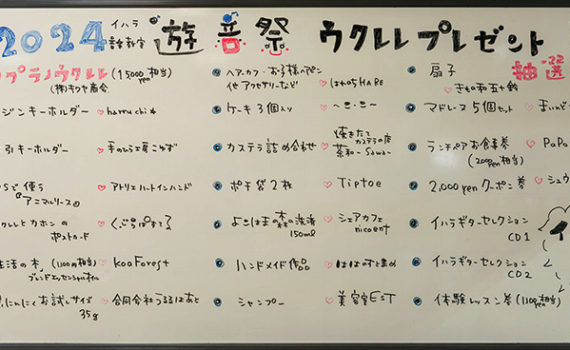 2024 イハラ音楽教室 遊音祭 ウクレレプレゼント 抽選
プラノウクレレ (15,000yen相当)
(株)キクヤ商会
ジンキーホルダー haruchi*
引キーホルダー
で使う
「アニマルリース」 アトリエハートインハンド
レレとカホンの
ポストカード くぷらぱする
生活の木 (1100円相当)
ブレンドエッセンシャルオイル koa Forest
にんにくお試しサイズ
35g 合同会社うるるはあと
ヘアーカフ・お子様ヘアピン
他 アクセサリーなど はれのちHARE
ケーキ3個入り
カステラ詰め合わせ 焼きたて
カステラの店
茶和-Sawa-
ポチ袋2枚 Tiptoe
よこはまの森の洗濯
150ml シェアカフェ
nicoent
ハンドメイド作品 ははのてしごと
シャンプー 美容室EST
扇子
きもの和五十鈴
マドレーヌ5個セット
ランチペアお食事券
(200yen相当) PaPa
2,000yenクーポン券
イハラギターセレクション
CD1
イハラギターセレクション
CD2
体験レッスン券(1100円相当)